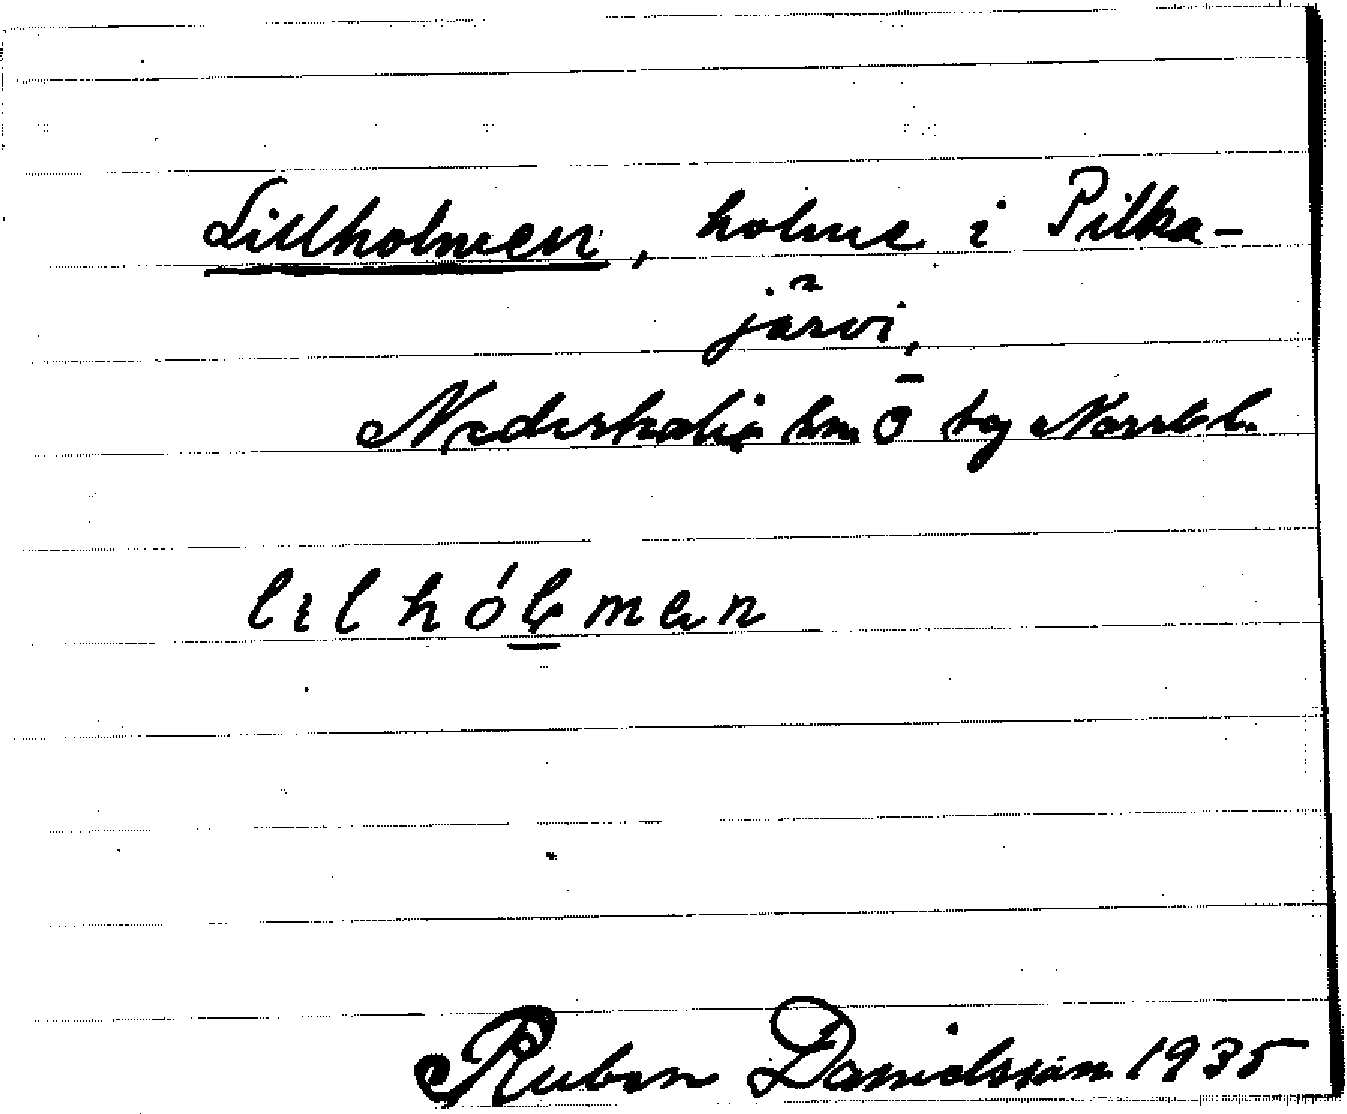 Lillholmen, holme i Pilka-
järvi,
Nederkalix hm Ö tg Norrb l.
lılhólmen
Ruben Danielsson 1935